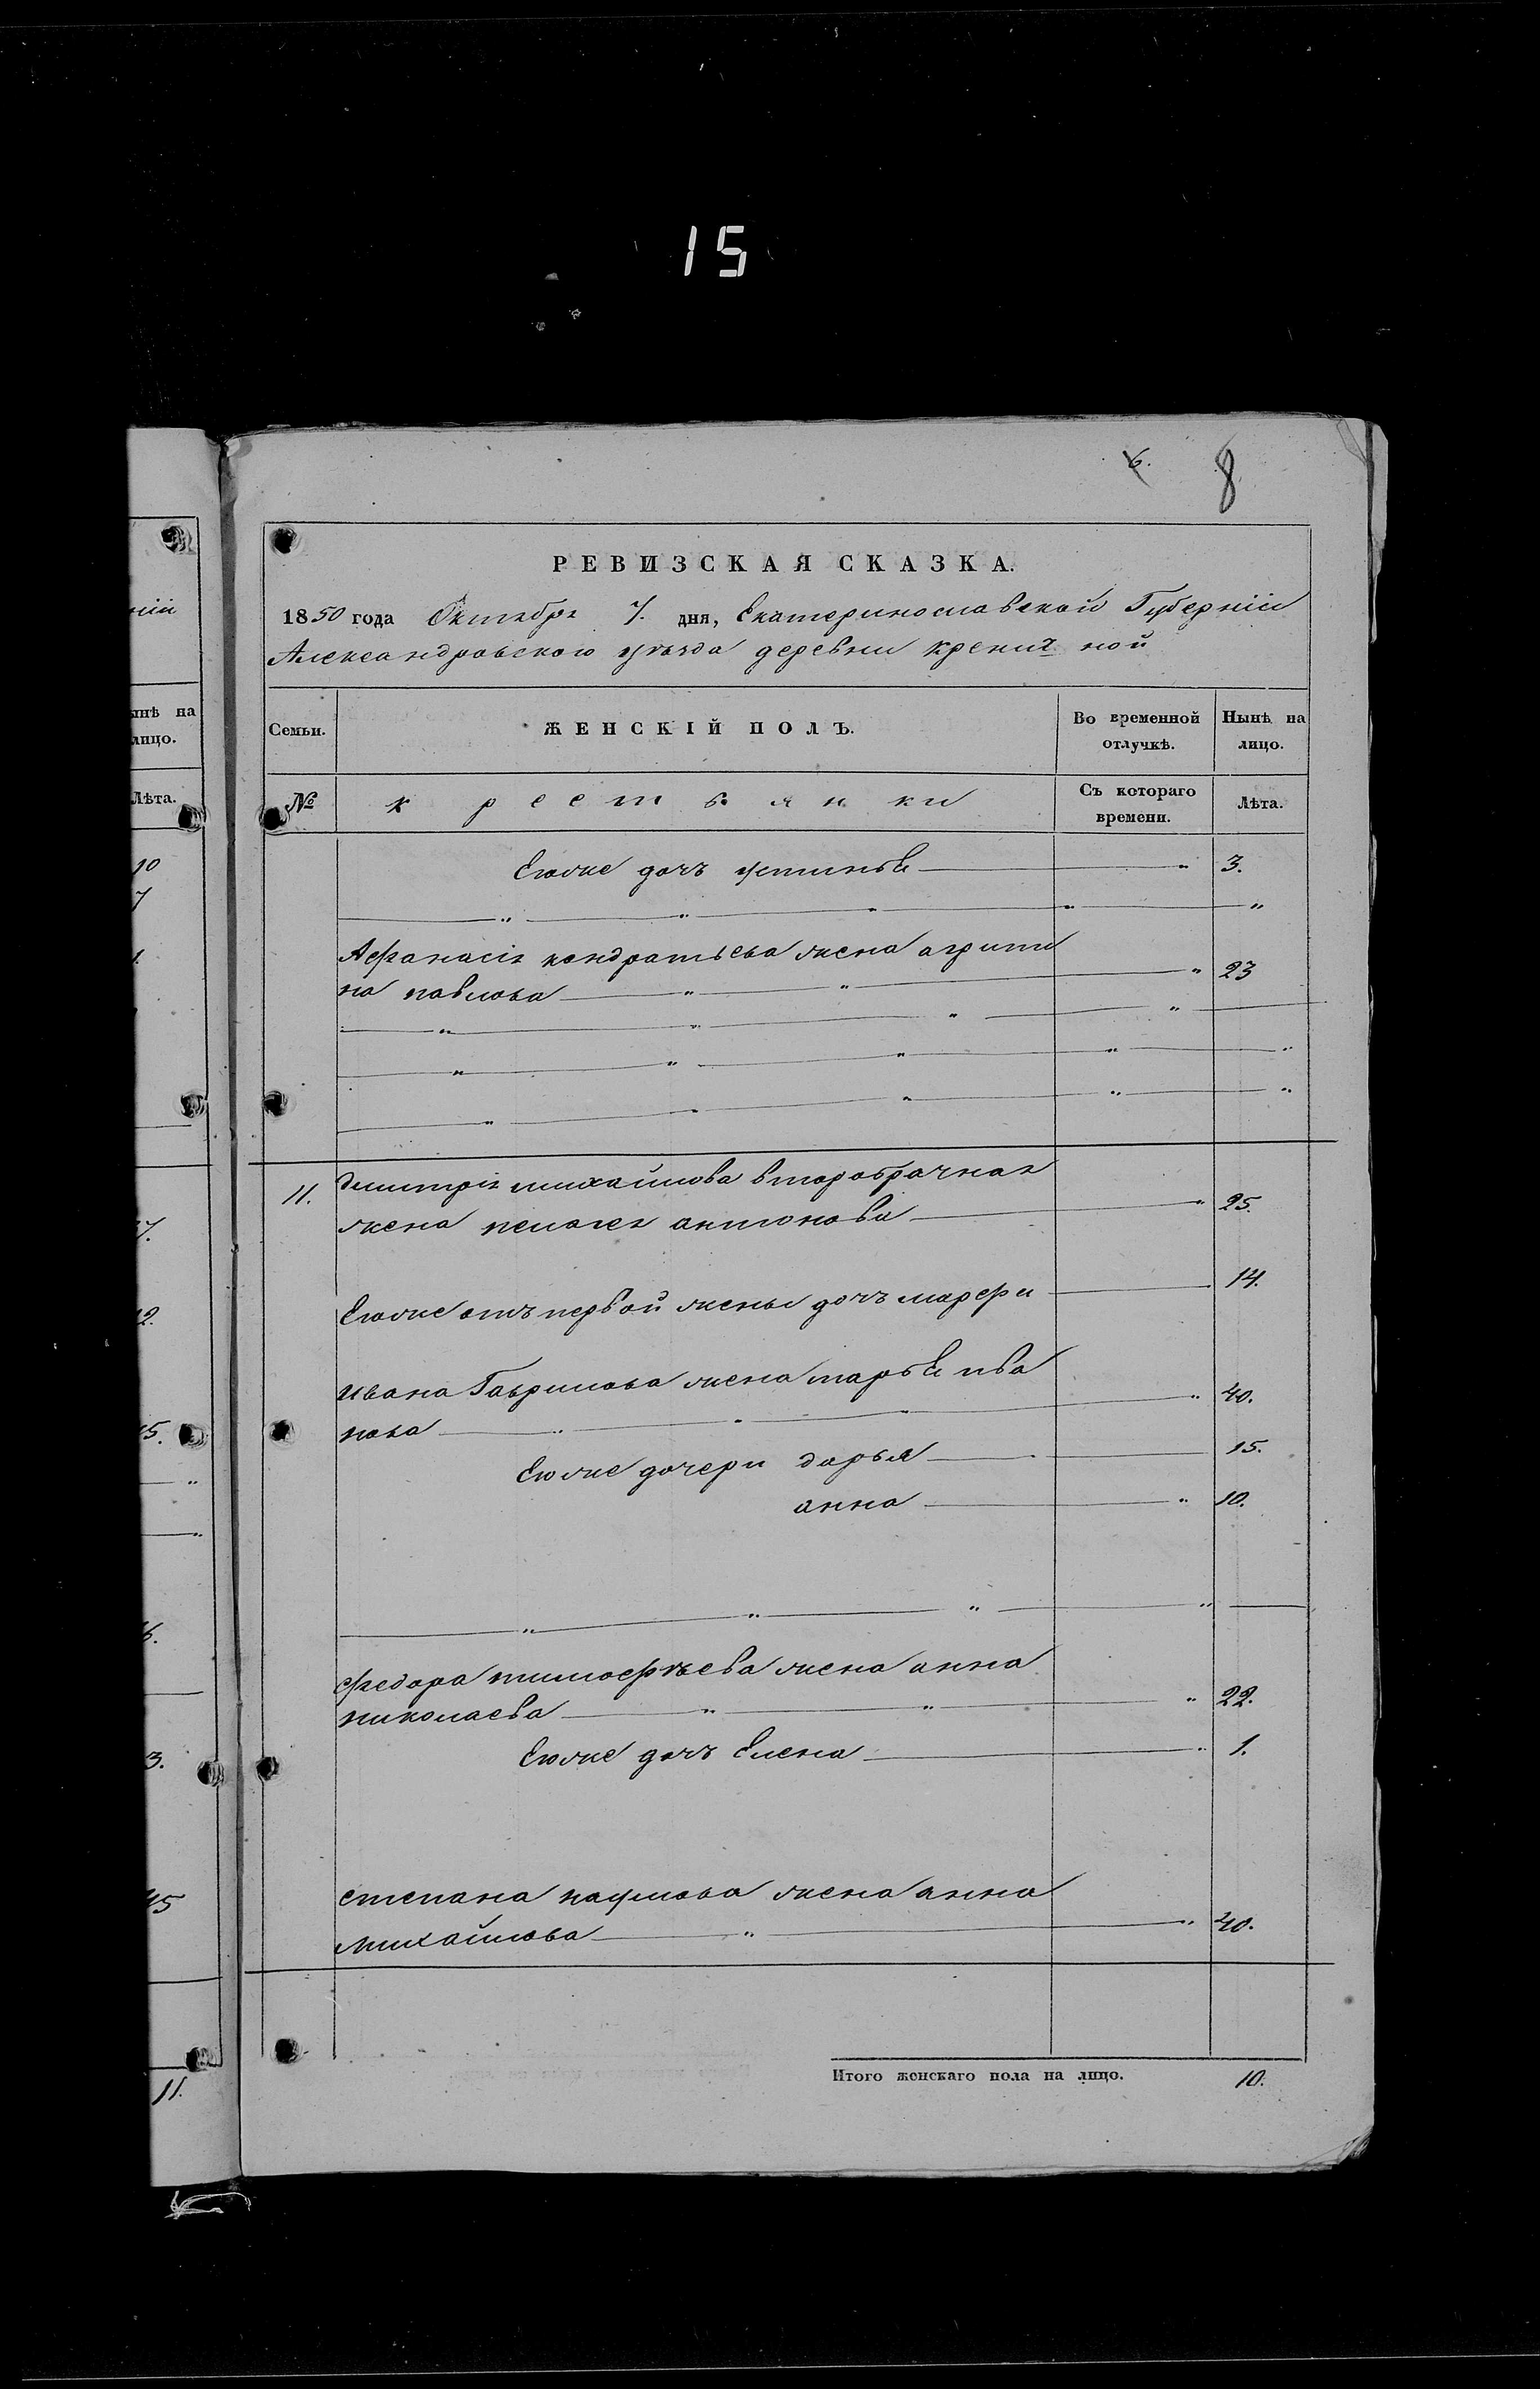 15
6. 8
РЕВИЗСКАЯ СКАЗКА.
1850 года Октября 7. дня, Екатеринославской Губерніи
Александровского уѣзда деревни кренич ной
Семьи. ЖЕНСКІЙ ПОЛЪ. Во временной отлучкѣ. Нынѣ на лицо.
№ крестьянки Съ котораго времени. Лѣта.
Егоже дочь устинья " 3.
" " " " "
Афанасія кондратьева жена агрипи
на павлова " " " 23
" " " "
" " " " "
" " " " "
11. Дмитрія михайлова второбрачная
жена пелагея антонова " 25.
Егоже отъ первой жены дочь марфа 14.
Ивана Гаврилова жена марья ива
нова " " " " 40.
Егоже дочери дарья 15.
анна " 10.
" " " "
федора тимофѣева жена анна
николаева " " " 22.
Егоже дочь Елена " 1.
степана наумова жена анна
михайлова " " 40.
Итого женскаго пола на лицо. 10.
ніи
ынѣ на
лицо.
Лѣта.
10
7
1.
7.
2.
5.
"
"
6.
3.
45
11.